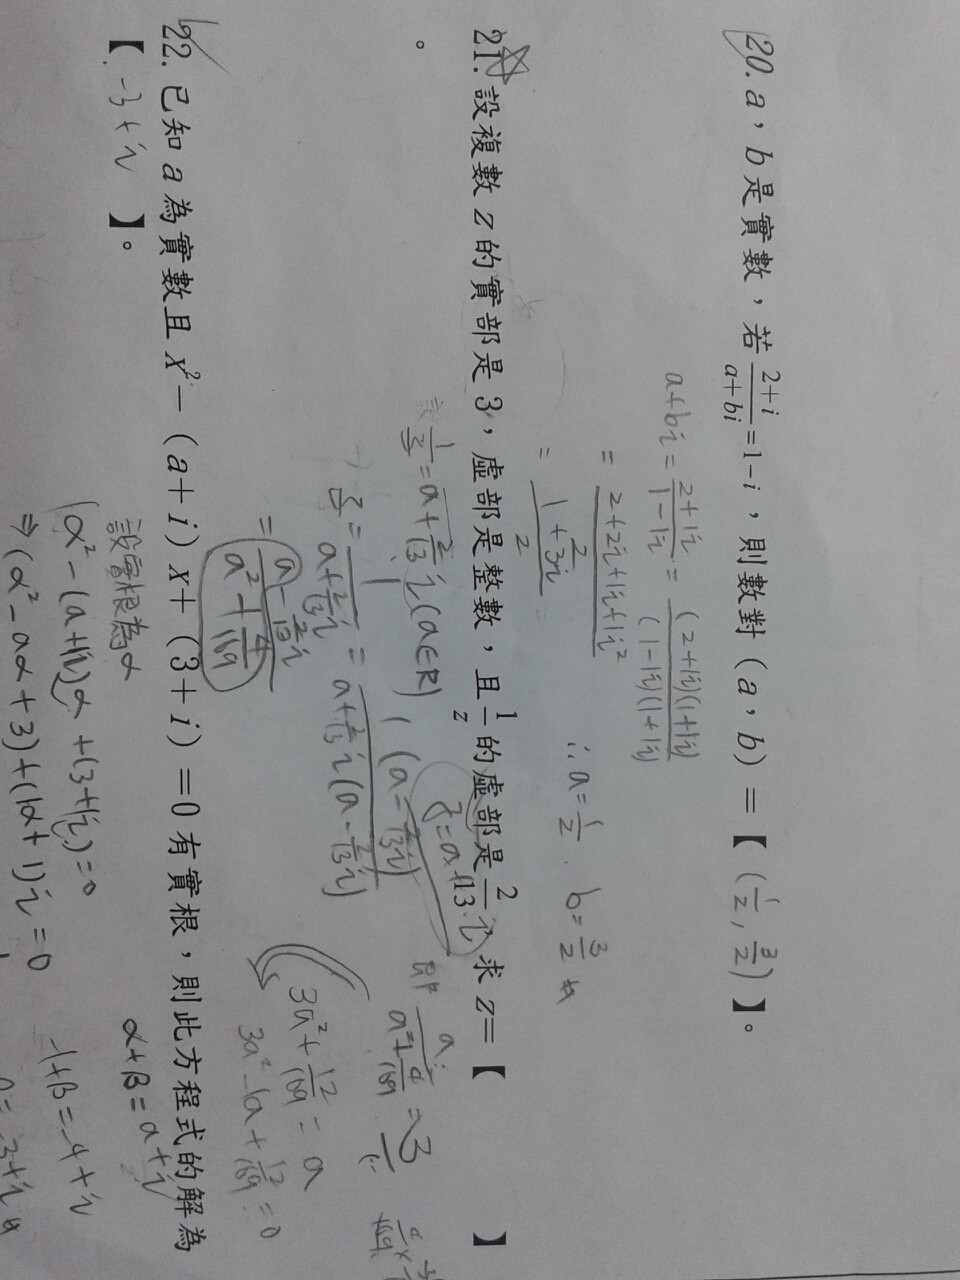 20. a，b是實數，若\frac{2+i}{a+bi}=1-i，則數對（a，b）=【(\frac{1}{2}, \frac{3}{2})】。
a+bi=\frac{2+1i}{1-1i}=\frac{(2+1i)(1+1i)}{(1-1i)(1+1i)}
=\frac{2+2i+1i+1i^2}{2}
=\frac{1+3i}{2}
∴a=\frac{1}{2}. b=\frac{3}{2}
21. 設複數z的實部是3，虛部是整數，且\frac{1}{z}的虛部是\frac{2}{13}i 求z=【 】
。
設\frac{1}{z}=a+\frac{2}{13}i(a∈R)
z=a+13i
(a-\frac{2}{13}i)
z=\frac{1}{a+\frac{2}{13}i}=\frac{}{a+\frac{2}{13}i(a-\frac{2}{13}i)}
=\frac{a-\frac{2}{13}i}{a^2+\frac{4}{169}}
\frac{a}{a^2+\frac{4}{169}}=3
3a^2+\frac{12}{169}=a
3a^2-1a+\frac{12}{169}=0
22. 已知a為實數且x^2-（a+i）x+（3+i）=0有實根，則此方程式的解為
【-3+i】。
設實根為α
α^2-(a+1i)α+(3+1i)=0
⇒(α^2-aα+3)+(1α+1)i=0
α+β=a+i
-1+β=-4+i
β=-3+i